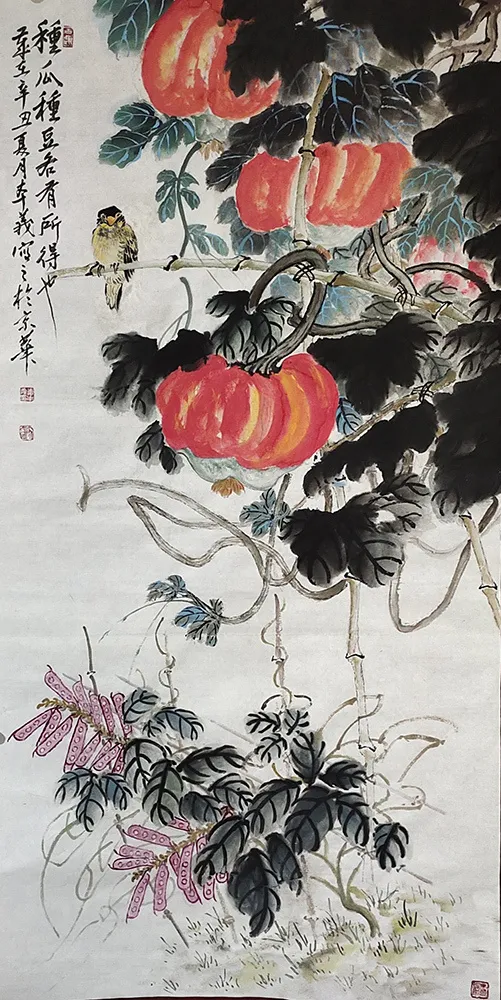 種瓜種豆各有所得也
歲在辛丑夏月義寫之於京華